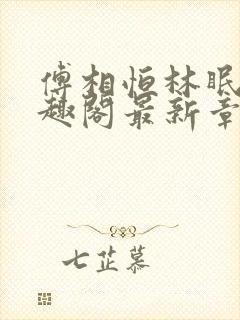 傅相恒林眠
趣阁最新章
七芷慕